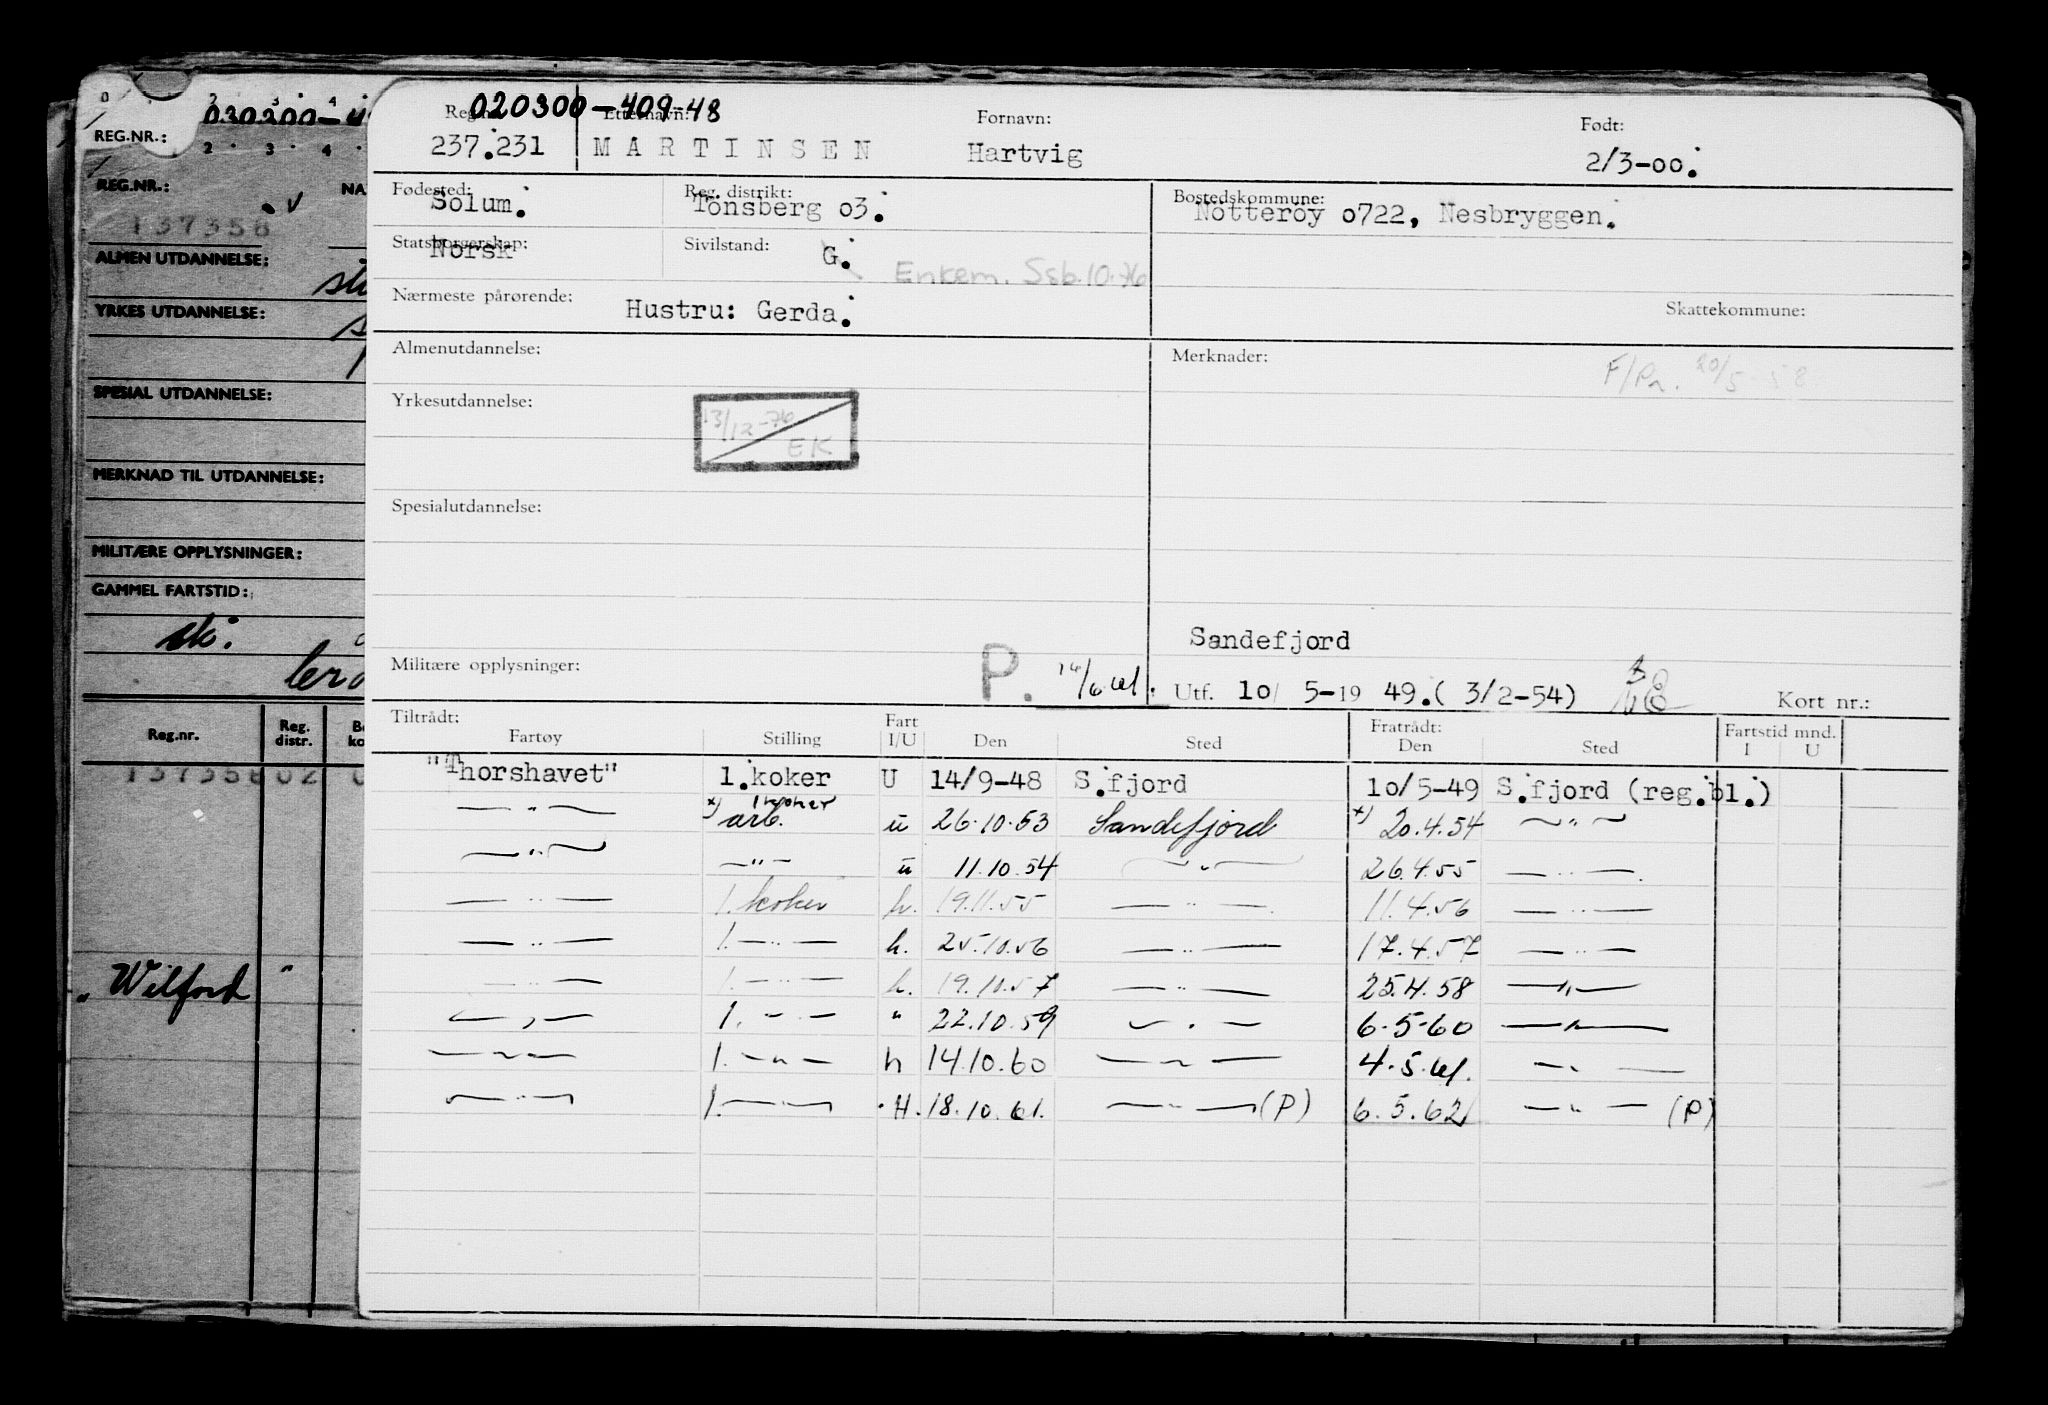 020300-409-48
Reg.nr. Etternavn: Fornavn: Født:
237.231 MARTINSEN Hartvig 2/3-00.
Fødested: Reg. distrikt: Bostedskommune:
Solum. Tönsberg o3. Nötteröy o722, Nesbryggen.
Statsborgerskap: Sivilstand:
Norsk G. Enkem. Ssb.10.76
Nærmeste pårørende: Hustru: Gerda. Skattekommune:
Almenutdannelse: Merknader:
F/Pn. 20/5-58
Yrkesutdannelse:
13/12-76
EK
Spesialutdannelse:
Sandefjord
Militære opplysninger: P. 14/6 61. Utf. 10/ 5-19 49.( 3/2-54) Kort nr.:
Tiltrådt: Fart Fratrådt: Fartstid mnd.
Fartøy Stilling I/U Den Sted Den Sted I U
"Thorshavet" 1.koker U 14/9-48 S.fjord 10/5-49 S.fjord (reg.bl.)
— " — x) 1 koker arb. u 26.10.53 Sandefjord x) 20.4.54 — " —
— " — — " — u 11.10.54 — " — 26.4.55 — " —
— " — 1. koker h. 19.11.55 — " — 11.4.56 — " —
— " — 1. — " — h. 25.10.56 — " — 17.4.57 — " —
— " — 1. — " — h. 19.10.57 — " — 25.4.58 — " —
— " — 1. — " — " 22.10.59 — " — 6.5.60 — " —
— " — 1. — " — h 14.10.60 — " — 4.5.61. — " —
— " — 1. — " — H. 18.10.61. — " — (P) 6.5.62 — " — (P)
0 2 3 4
030200-4
REG.NR.:
2 · 3 · 4 ·
REG.NR.: NA
137358
ALMEN UTDANNELSE:
YRKES UTDANNELSE:
SPESIAL UTDANNELSE:
MERKNAD TIL UTDANNELSE:
MILITÆRE OPPLYSNINGER:
GAMMEL FARTSTID:
sk.
Reg.nr. Reg. distr. Bo ko
137358 02 0
"Wilford"